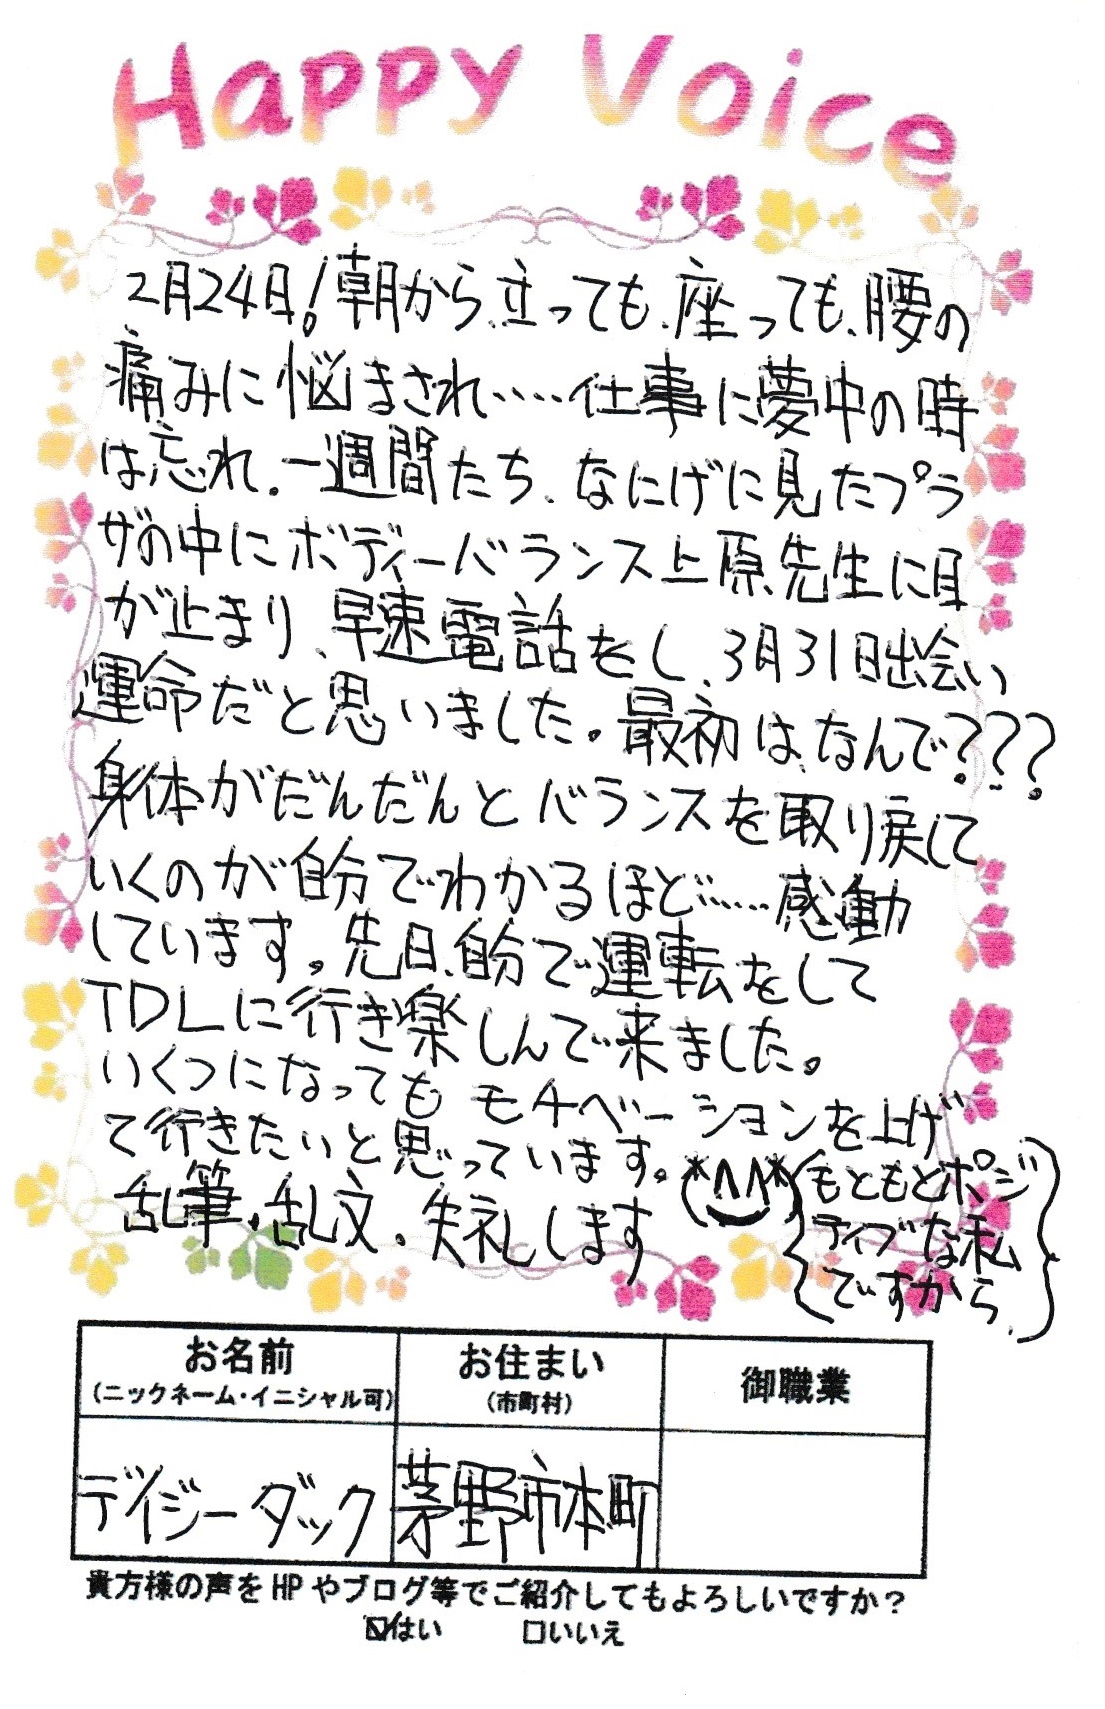 Happy Voice
2月24日!朝から、立っても、座っても、腰の
痛みに悩まされ‥‥仕事に夢中の時
は忘れ、一週間たち、なにげに見たプラ
ザの中にボディーバランス上原先生に目
が止まり、早速電話をし、3月31日出会い
運命だと思いました。最初は、なんで???
身体がだんだんとバランスを取り戻して
いくのが自分でわかるほど‥‥‥感動
しています。先日、自分で運転をして
TDLに行き楽しんで来ました。
いくつになってもモチベーションを上げ
て行きたいと思っています。(*^^*)
{もともとポジ
ティブな私
ですから、}
乱筆、乱文、失礼します
お名前
(ニックネーム・イニシャル可)
お住まい
(市町村)
御職業
デイジーダック
茅野市本町
貴方様の声をHPやブログ等でご紹介してもよろしいですか?
☑はい □いいえ